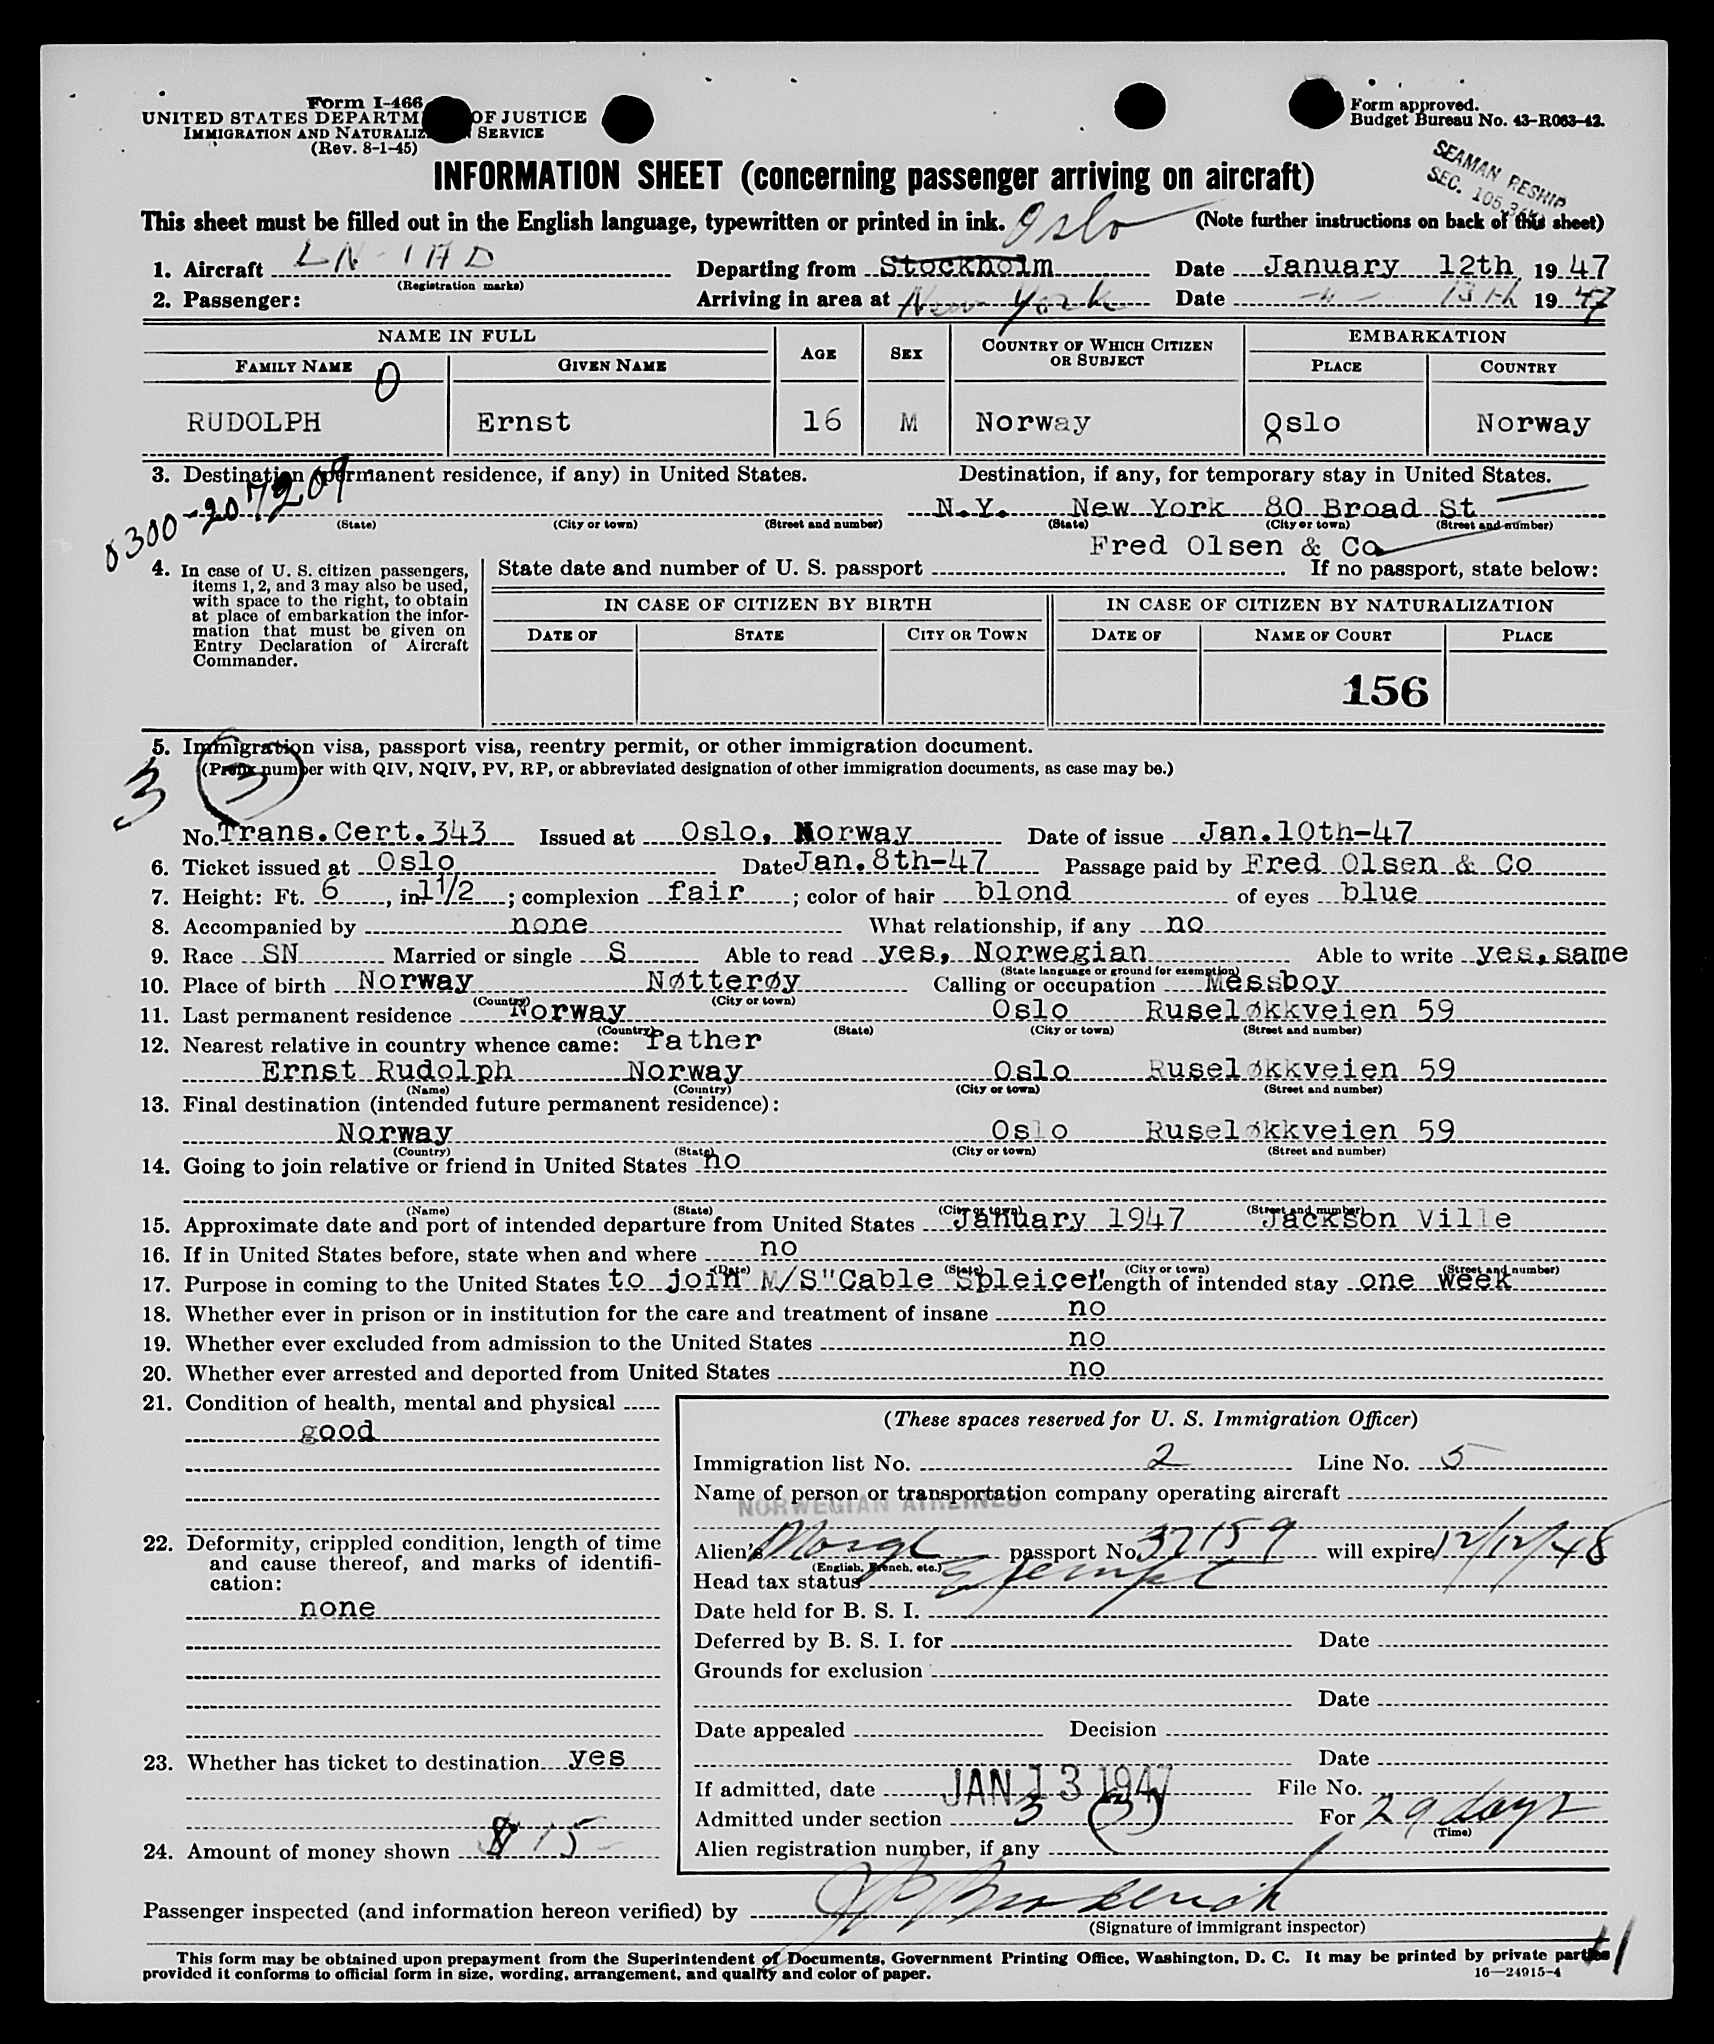 Form I-466
UNITED STATES DEPARTM OF JUSTICE
IMMIGRATION AND NATURALIZ N SERVICE
(Rev. 8-1-45)
Form approved.
Budget Bureau No. 43-R063-42.
SEAMAN RESHIP
SEC.
INFORMATION SHEET (concerning passenger arriving on aircraft)
This sheet must be filled out in the English language, typewritten or printed in ink. Oslo (Note further instructions on back of this sheet)
1. Aircraft LN-IAD Departing from Stockholm Date January 12th, 1947
(Registration marks)
2. Passenger: Arriving in area at New York Date -"- 13th 1947
NAME IN FULL AGE SEX COUNTRY OF WHICH CITIZEN OR SUBJECT EMBARKATION
FAMILY NAME GIVEN NAME PLACE COUNTRY
0
RUDOLPH Ernst 16 M Norway Oslo Norway
3. Destination (permanent residence, if any) in United States. Destination, if any, for temporary stay in United States.
0300-207209
N.Y. New York 80 Broad St
(State) (City or town) (Street and number) (State) (City or town) (Street and number)
Fred Olsen & Co
4. In case of U. S. citizen passengers, items 1, 2, and 3 may also be used, with space to the right, to obtain at place of embarkation the information that must be given on Entry Declaration of Aircraft Commander.
State date and number of U. S. passport If no passport, state below:
IN CASE OF CITIZEN BY BIRTH IN CASE OF CITIZEN BY NATURALIZATION
DATE OF STATE CITY OR TOWN DATE OF NAME OF COURT PLACE
156
5. Immigration visa, passport visa, reentry permit, or other immigration document.
(Prefix number with QIV, NQIV, PV, RP, or abbreviated designation of other immigration documents, as case may be.)
3 (3)
No. Trans.Cert.343 Issued at Oslo, Norway Date of issue Jan.10th-47
6. Ticket issued at Oslo Date Jan.8th-47 Passage paid by Fred Olsen & Co
7. Height: Ft. 6, in. 1 1/2; complexion fair; color of hair blond of eyes blue
8. Accompanied by none What relationship, if any no
9. Race SN Married or single S Able to read yes, Norwegian Able to write yes,same
(State language or ground for exemption)
10. Place of birth Norway Nøtterøy Calling or occupation Messboy
(Country) (City or town)
11. Last permanent residence Norway Oslo Ruseløkkveien 59
(Country) (State) (City or town) (Street and number)
12. Nearest relative in country whence came: father
Ernst Rudolph Norway Oslo Ruseløkkveien 59
(Name) (Country) (City or town) (Street and number)
13. Final destination (intended future permanent residence):
Norway Oslo Ruseløkkveien 59
(Country) (State) (City or town) (Street and number)
14. Going to join relative or friend in United States no
(Name) (State) (City or town) (Street and number)
15. Approximate date and port of intended departure from United States January 1947 Jackson Ville
16. If in United States before, state when and where no
(Date) (State) (City or town) (Street and number)
17. Purpose in coming to the United States to join M/S"Cable Spleicer" Length of intended stay one week
18. Whether ever in prison or in institution for the care and treatment of insane no
19. Whether ever excluded from admission to the United States no
20. Whether ever arrested and deported from United States no
21. Condition of health, mental and physical
good
22. Deformity, crippled condition, length of time and cause thereof, and marks of identification:
none
23. Whether has ticket to destination yes
24. Amount of money shown $15-
(These spaces reserved for U. S. Immigration Officer)
Immigration list No. 2 Line No. 5
Name of person or transportation company operating aircraft
NORWEGIAN AIRLINES
Alien's passport No. 37159 will expire 12/12/48
(English, French, etc.)
Head tax status Exempt
Date held for B. S. I.
Deferred by B. S. I. for Date
Grounds for exclusion
Date
Date appealed Decision
Date
If admitted, date JAN 13 1947 File No.
Admitted under section 3 (3) For 29 days
(Time)
Alien registration number, if any
Passenger inspected (and information hereon verified) by
(Signature of immigrant inspector)
This form may be obtained upon prepayment from the Superintendent of Documents, Government Printing Office, Washington, D. C. It may be printed by private parties
provided it conforms to official form in size, wording, arrangement, and quality and color of paper.
16—24915-4